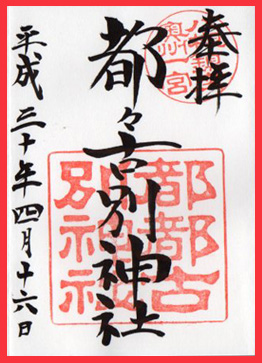 奉拝
奥州一宮
都々古別神社
都都古
別神社
平成三十年四月十六日